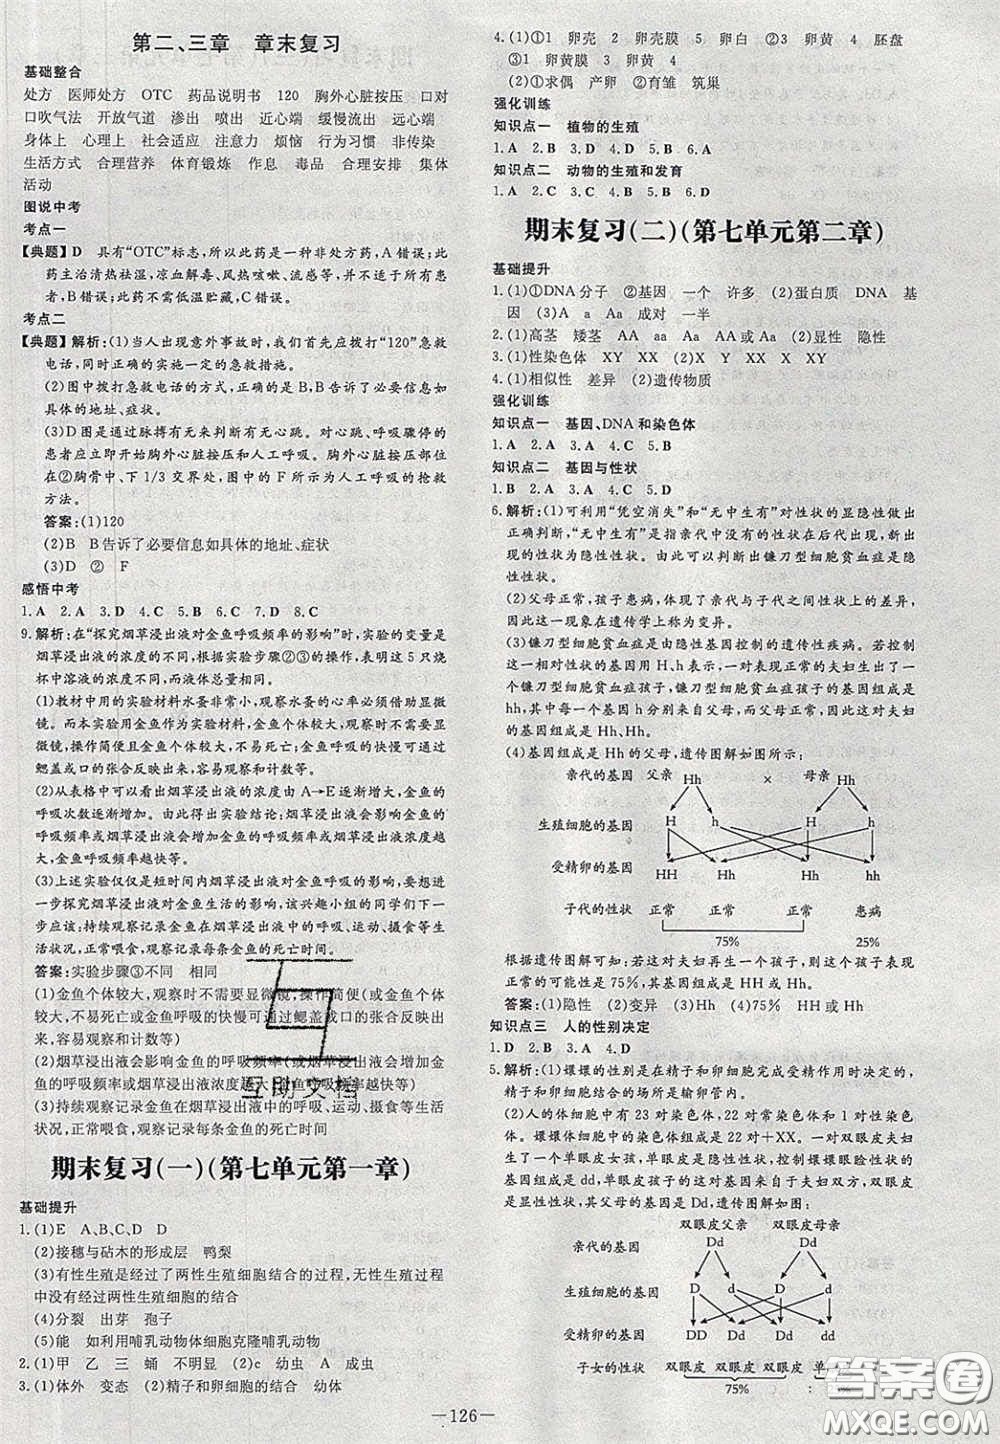 第二、三章　章末复习
基础整合
处方　医师处方　OTC　药品说明书　120　胸外心脏按压　口对
口吹气法　开放气道　渗出　喷出　近心端　缓慢流出　远心端
身体上　心理上　社会适应　注意力　烦恼　行为习惯　非传染
生活方式　合理营养　体育锻炼　作息　毒品　合理安排　集体
活动
图说中考
考点一
【典题】D　具有“OTC”标志,所以此药是一种非处方药,A错误;此
药主治清热祛湿,凉血解毒、风热咳嗽、流感等,并不适用于所有患
者,B错误;此药不需低温贮藏,C错误。
考点二
【典题】解析:(1)当人出现意外事故时,我们首先应拨打“120”急救
电话,同时正确的实施一定的急救措施。
(2)图中拨打急救电话的方式,正确的是B,B告诉了必要信息如
具体的地址、症状。
(3)D图是通过脉搏有无来判断有无心跳。对心跳、呼吸骤停的
患者应立即开始胸外心脏按压和人工呼吸。胸外心脏按压部位
在②胸骨中、下1/3交界处,图中的F所示为人工呼吸的抢救
方法。
答案:(1)120
(2)B　B告诉了必要信息如具体的地址、症状
(3)D　②　F
感悟中考
1.A　2.A　3.D　4.D　5.C　6.C　7.D　8.C
9.解析:在“探究烟草浸出液对金鱼呼吸频率的影响”时,实验的变量是
烟草浸出液的浓度的不同,根据实验步骤②③的操作,表明这5只烧
杯中溶液的浓度不同,而液体总量是相同的。
(1)教材中用的实验材料水蚤非常小,观察水蚤的心率必须借助显微
镜。而本实验用金鱼作为实验材料,金鱼个体较大,观察时不需要显
微镜,操作简便且安全(或金鱼个体较大,不易死亡);金鱼呼吸的快慢可通过
鳃盖或口的张合反映出来,容易观察和计数等。
(2)从表格中可以看出烟草浸出液的浓度由A→E逐渐增大,金鱼的
呼吸次数逐渐增加。由此得出实验结论:烟草浸出液会影响金鱼的
呼吸频率或烟草浸出液会增加金鱼的呼吸频率或烟草浸出液浓度越
大,金鱼呼吸频率越快等。
(3)上述实验仅仅是短时间内烟草浸出液对金鱼呼吸的影响,要探究
烟草浸出液对金鱼生活的影响,该兴趣小组今后可作如下实验改进
方法:持续观察记录金鱼在烟草浸出液中的呼吸、运动、摄食等生活
状况,正常喂食,观察记录每条金鱼的死亡时间。
答案:实验步骤③不同　相同
(1)金鱼个体较大,观察时不需要显微镜,操作简便(或金鱼个体较大,
不易死亡或金鱼呼吸的快慢可通过鳃盖或口的张合反映出来,
容易观察和计数等)
(2)烟草浸出液会影响金鱼的呼吸频率(或烟草浸出液会增加金
鱼的呼吸频率或烟草浸出液浓度越大,金鱼呼吸频率越快等)
(3)持续观察记录金鱼在烟草浸出液中的呼吸、运动、摄食等生活状
况,正常喂食,观察记录每条金鱼的死亡时间
互助文档
期末复习(一)(第七单元第一章)
基础提升
1.(1)E　A、B、C、D　D
(2)接穗与砧木的形成层　鸭梨
(3)有性生殖是经过了两性生殖细胞结合的过程,无性生殖过程
中没有经过两性生殖细胞的结合
(4)分裂　出芽　孢子
(5)能　如利用哺乳动物体细胞克隆哺乳动物
2.(1)甲　乙　三　蛹　不明显　(2)c　幼虫　A　成虫
3.(1)体外　变态　(2)精子和卵细胞结合　幼体
4.(1)①1　卵壳　2　卵壳膜　7　卵白　②3　卵黄　4　胚盘
③1　卵黄膜　3　卵黄　4
(2)①求偶　产卵　②育雏　筑巢
强化训练
知识点一　植物的生殖
1.A　2.B　3.D　4.D　5.B　6.A
知识点二　动物的生殖和发育
1.A　2.C　3.C　4.B　5.B　6.D
期末复习(二)(第七单元第二章)
基础提升
1.(1)①DNA分子　②基因　一个　许多　(2)蛋白质　DNA　基
因　(3)A　a　Aa　成对　一半
2.(1)高茎　矮茎　AA　aa　AA或Aa　(2)显性　隐性
3.(1)性染色体　XY　XX　(2)X　Y　XX　XY
4.(1)相似性　差异　(2)遗传物质
强化训练
知识点一　基因、DNA和染色体
1.A　2.A　3.C　4.C　5.B
知识点二　基因与性状
1.B　2.D　3.A　4.C　5.D
6.解析:(1)可利用“凭空消失”和“无中生有”对性状的显隐性做出
正确判断,“无中生有”是指亲代中没有的性状在后代出现,出
现的性状为隐性性状。由此可以判断出镰刀型细胞贫血症是隐
性性状。
(2)父母正常,孩子患病,体现了亲代与子代之间性状上的差异,
因此这一现象在遗传学上称为变异。
(3)镰刀型细胞贫血症是由隐性基因控制的遗传性疾病。若控
制这一性状的基因用H、h表示,一对表现正常的夫妇生出了一个
镰刀型细胞贫血症孩子,镰刀型细胞贫血症孩子的基因组成是
hh,其中每一个基因h分别来自父母,而父母正常,因此这对夫妇
的基因组成是Hh、Hh。
(4)基因组成是Hh的父母,遗传图解如图所示:
亲代的基因　父亲　Hh　×　母亲　Hh
生殖细胞的基因　H　h　H　h
受精卵的基因　HH　Hh　Hh　hh
子代的性状　正常　正常　正常　患病
75%　25%
根据遗传图解可知:若这对夫妇再生一个孩子,则该孩子表现正常
的可能性是75%,其基因组成是HH或Hh。
答案:(1)隐性　(2)变异　(3)Hh　(4)75%　HH或Hh
知识点三　人的性别决定
1.D　2.B　3.A　4.D
5.解析:(1)媛媛的性别是在精子和卵细胞完成受精作用时决定
的,受精的场所是输卵管内。
(2)人的体细胞中有23对染色体,22对常染色体和1对性染色
体。媛媛体细胞中的染色体组成是22对+XX。一对双眼皮夫妇
生了一个单眼皮女孩,单眼皮是隐性性状,控制媛媛单眼皮的基
因组成是dd,其单眼皮基因来自于夫妇双方,双眼皮是显性性
状,因此其父母的基因组成是Dd,遗传图解如图:
双眼皮父亲　双眼皮母亲
亲代的基因　Dd　Dd
生殖细胞的基因　D　d　D　d
受精卵的基因　DD　Dd　Dd
子女的性状　双眼皮　双眼皮　双眼皮　单
75%
答案圈
MXQE.COM
—126—